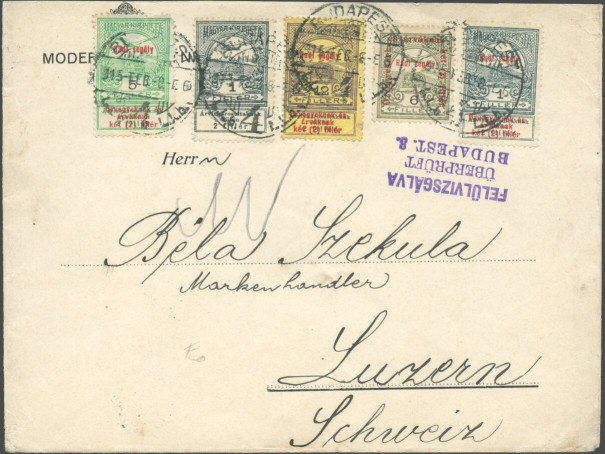 MAGYAR KIR. POSTA
Hadi segély
5
Özvegyeknek és
árváknak
két (2) fillér
MAGYAR KIR. POSTA
1
FILLER
2 fillér
Hadi segély
12
FILLER
Özvegyeknek és
árváknak
két (2) fillér
Hadi segély
6
FILLER
MAGYAR KIR. POSTA
Hadi segély
1
FILLER
Özvegyeknek és
árváknak
két (2) fillér
BUDAPEST
915 FEB
MODER
FELÜLVIZSGÁLVA
ÜBERPRÜFT
BUDAPEST. 8.
Herrn
Béla Szekula
Markenhändler
Luzern
Schweiz